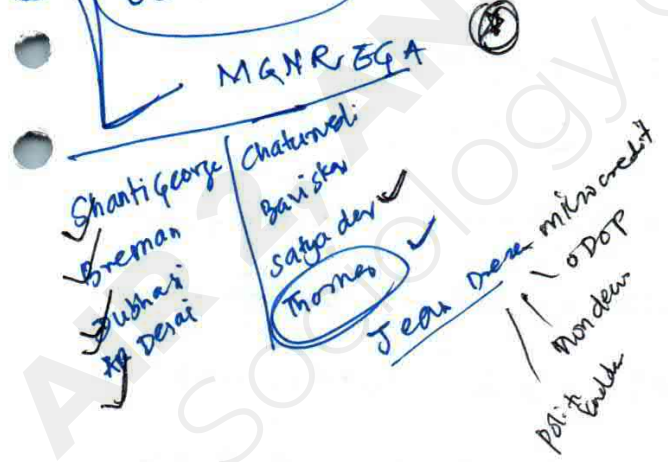 MGNREGA
Shanti George
Breman
Dubhasi
AR Desai
Chaturvedi
Baviskar
Satya dev
Thomas
Jean Dreze
microcredit
ODOP
AIR 2 AN
Sociology